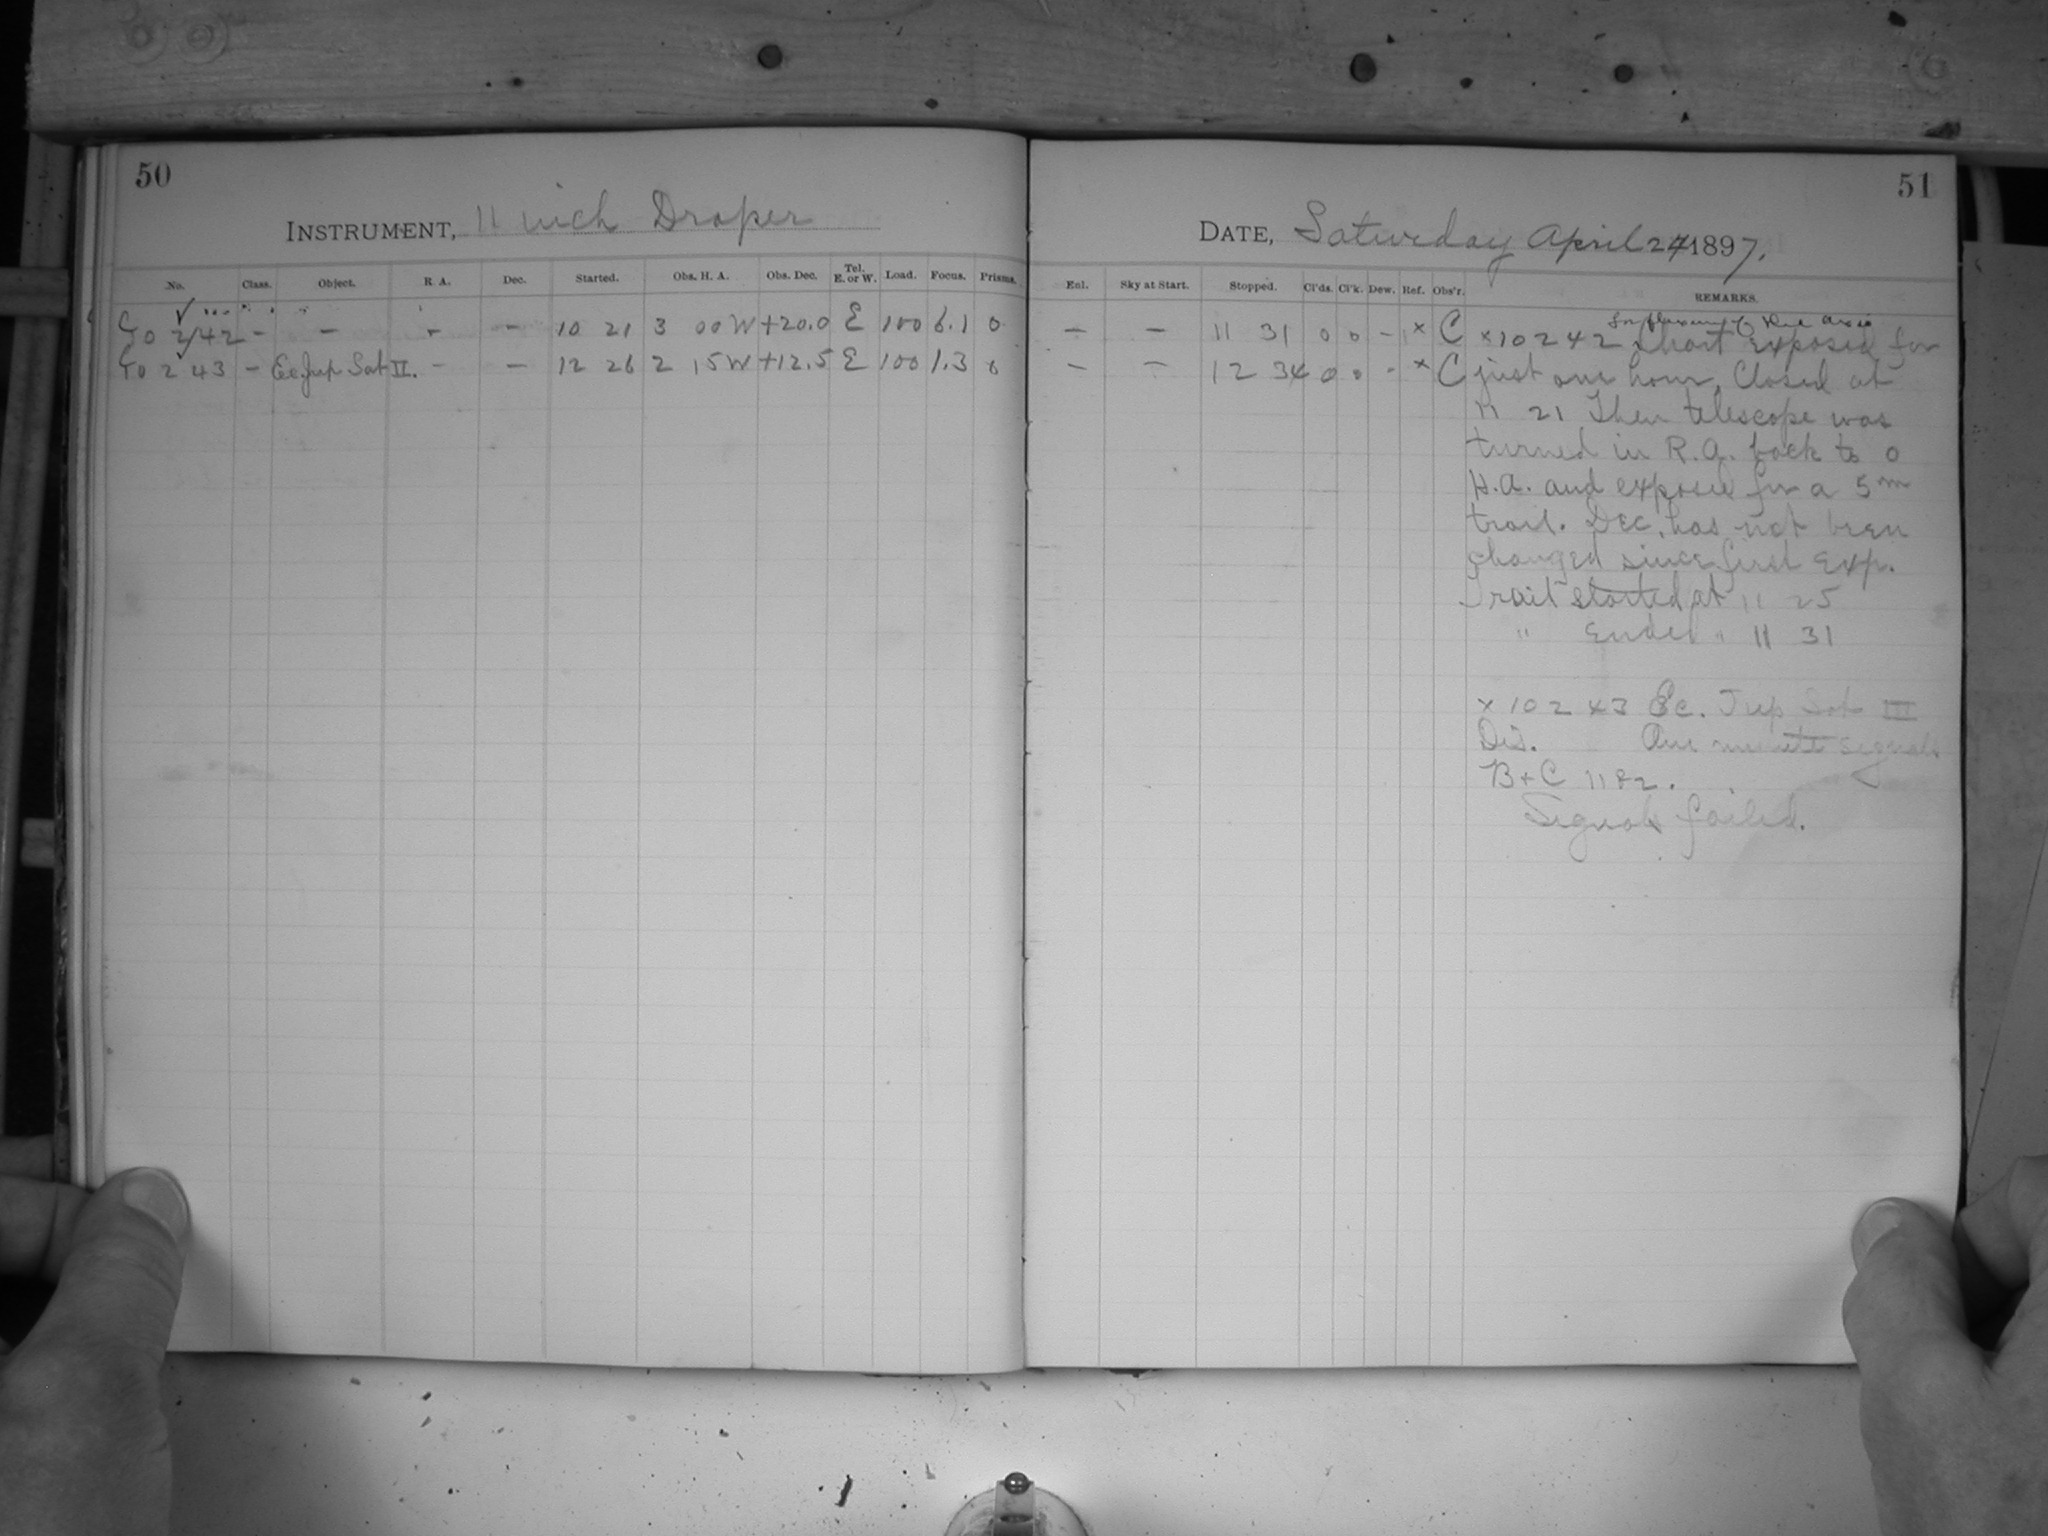 50
INSTRUMENT, 11 inch Draper
No. Class. Object. R. A. Dec. Started. Obs. H. A. Obs. Dec. Tel. E. or W. Load. Focus. Prisms.
10242 - - - - 10 21 3 00 W +20.0 E 100 6.1 0
10243 - Ec. Jup Sat II. - - 12 26 2 15 W +12.5 E 100 1.3 0
51
DATE, Saturday April 24 1897.
Exl. Sky at Start. Stopped. Cl'ds. Cl'k. Dew. Ref. Obs'r. REMARKS.
- - 11 31 0 0 - x C x10242 Short exposed for
- - 12 34 0 0 - x C just one hour. Closed at
11 21 Then telescope was
turned in R.A. back to 0
H.A. and exposed for a 5m
trail. Dec. has not been
changed since first Exp.
Trail started at 11 25
" Ended " 11 31
x10243 Ec. Jup Sat III
Dis. One minute signals
B+C 1182.
Signals failed.